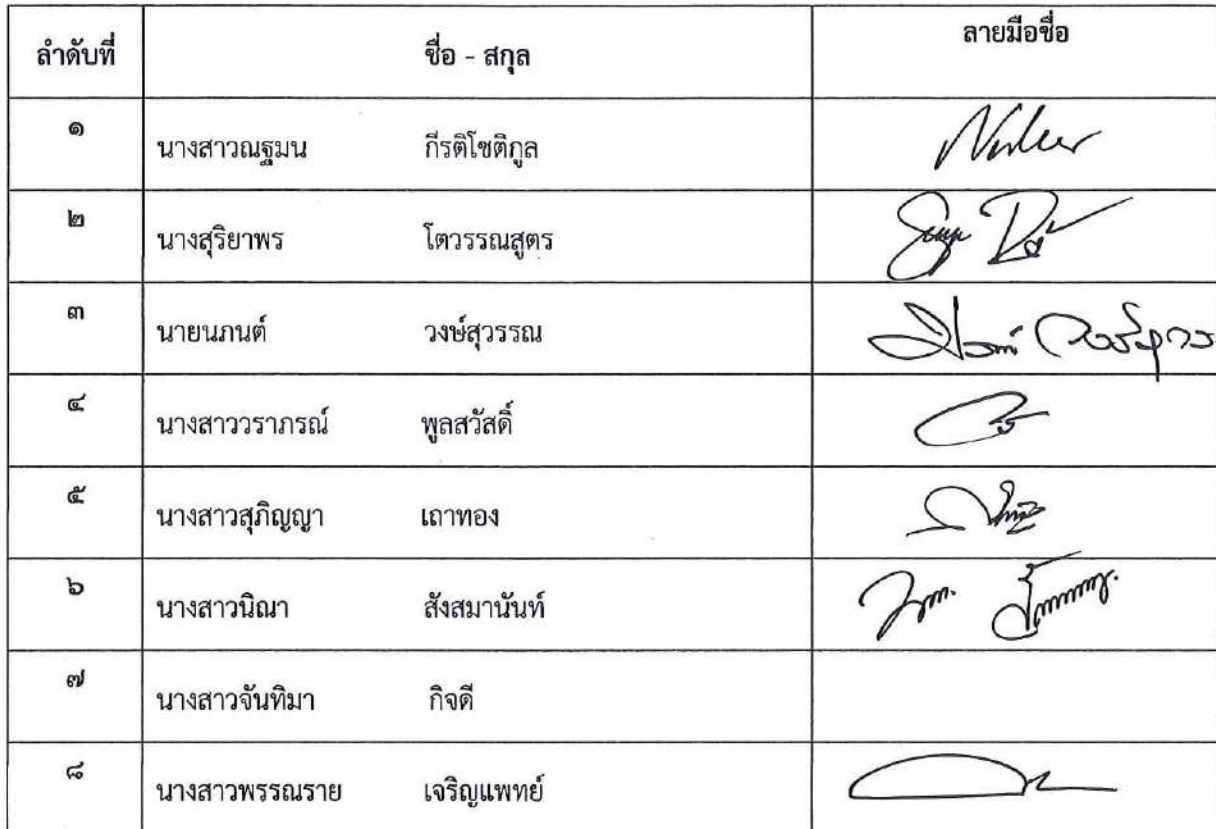 ลำดับที่ ชื่อ - สกุล ลายมือชื่อ
๑ นางสาวณฐมน กีรติโชติกูล
๒ นางสุริยาพร โตวรรณสูตร
๓ นายนภนต์ วงษ์สุวรรณ
๔ นางสาววราภรณ์ พูลสวัสดิ์
๕ นางสาวสุภิญญา เถาทอง
๖ นางสาวนิณา สังสมานันท์
๗ นางสาวจันทิมา กิจดี
๘ นางสาวพรรณราย เจริญแพทย์